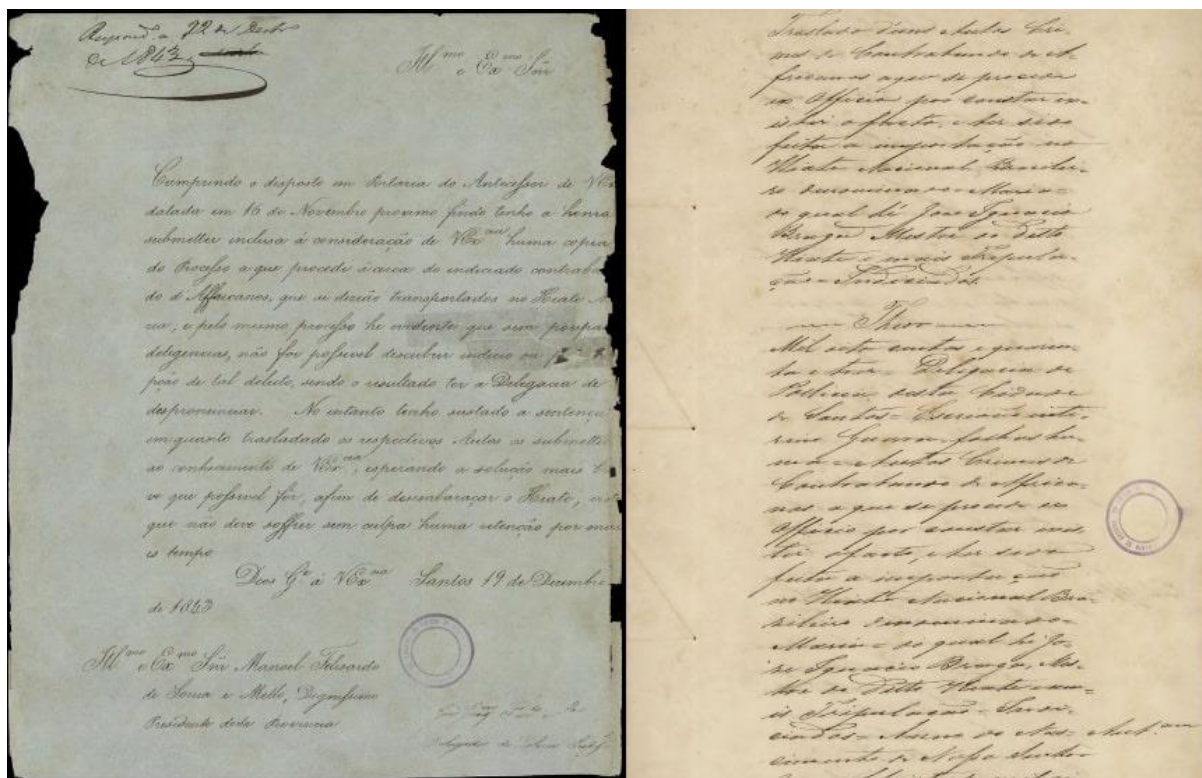 Respond. a 22 de Dezbro
de 1843
Illmo e Exmo Snr
Cumprindo o disposto em Portaria do Antecessor de VEx
datada em 16 de Novembro proximo findo tenho a honra
submetter inclusa á consideração de VExcia huma copia
do Processo a que procedi ácerca do indiciado contraban
do d'Affricanos, que se dizião transportados no Hiate Ma
ria, e pelo mesmo processo he evidente que sem poupar
deligencias, não foi possivel descubrir indicio ou
pção de tal delicto, sendo o resultado ter a Delegacia de
despronunciar. No entanto tenho sustado a sentença
emquanto trasladado os respectivos Autos os submetto
ao conhecimento de VExcia, esperando a solução mais bre
ve que possivel fôr, afim de desembaraçar o Hiate,
que não deve soffrer sem culpa huma retenção por ma
is tempo
Deos Ge á VExcia Santos 19 de Dezembro
de 1843
Illmo e Exmo Snr Manoel Felisardo
de Sousa e Mello, Dignissimo
Presidente desta Provincia
Traslado d'uns Autos Cri-
mes de Contrabando de A-
fricanos a que se procede
ex Officio por constar ex-
istir o facto, e ter sido
feita a importação no
Hiate Nacional Brazilei-
ro denominado = Maria =
do qual hé José Ignacio
Braga Mestre do dito
Hiate e mais Tripula-
ção = Indiciados.
Mil oito centos e quaren-
ta e tres = Delegacia de
Policia desta Cidade
de Santos = Escrivão inte-
rino Guerra = folhas hu-
ma = Autos Crimes de
Contrabando de Africa-
nos, a que se procede ex
Officio por constar exis-
tir o facto, e ter sido
feita a importação
no Hiate Nacional Bra-
zileiro denominado =
Maria = do qual hé Jo-
sé Ignacio Braga, Mes-
tre do dito Hiate e ma-
is Tripulação = Indi-
ciados = Anno do Nas-
cimento de Nosso Senhor